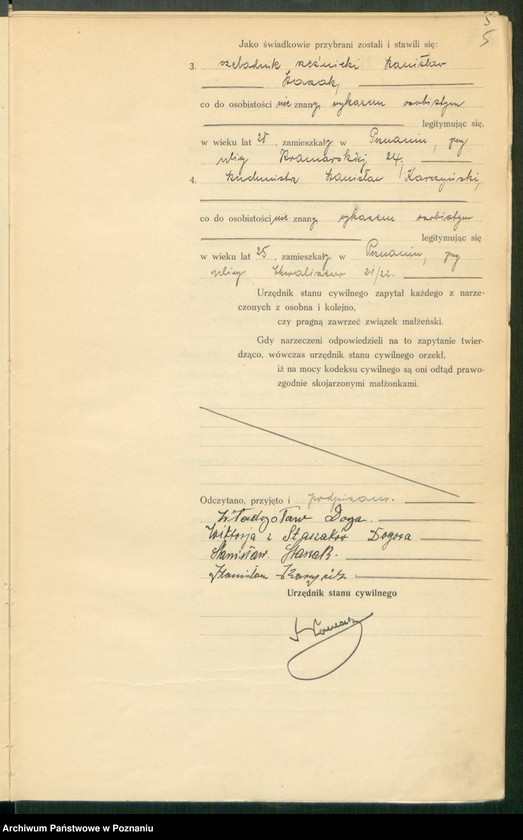 5
Jako świadkowie przybrani zostali i stawili się:
3. czeladnik rzeźnicki Stanisław
co do osobistości nie znany, wykazem osobistym
legitymując się.
w wieku lat 28, zamieszkały w Poznaniu, przy
ulicy Kramarskiej 24.
4. Stanisław
co do osobistości nie znany wykazem osobistym
legitymując się
w wieku lat 25, zamieszkały w Poznaniu, przy
ulicy 21/22.
Urzędnik stanu cywilnego zapytał każdego z narze-
czonych z osobna i kolejno,
czy pragną zawrzeć związek małżeński.
Gdy narzeczeni odpowiedzieli na to zapytanie twier-
dząco, wówczas urzędnik stanu cywilnego orzekł,
iż na mocy kodeksu cywilnego są oni odtąd prawo-
zgodnie skojarzonymi małżonkami.
Odczytano, przyjęto i podpisano.
Władysław Doga
z Staszaków
Stanisław
Stanisław
Urzędnik stanu cywilnego
Archiwum Państwowe w Poznaniu